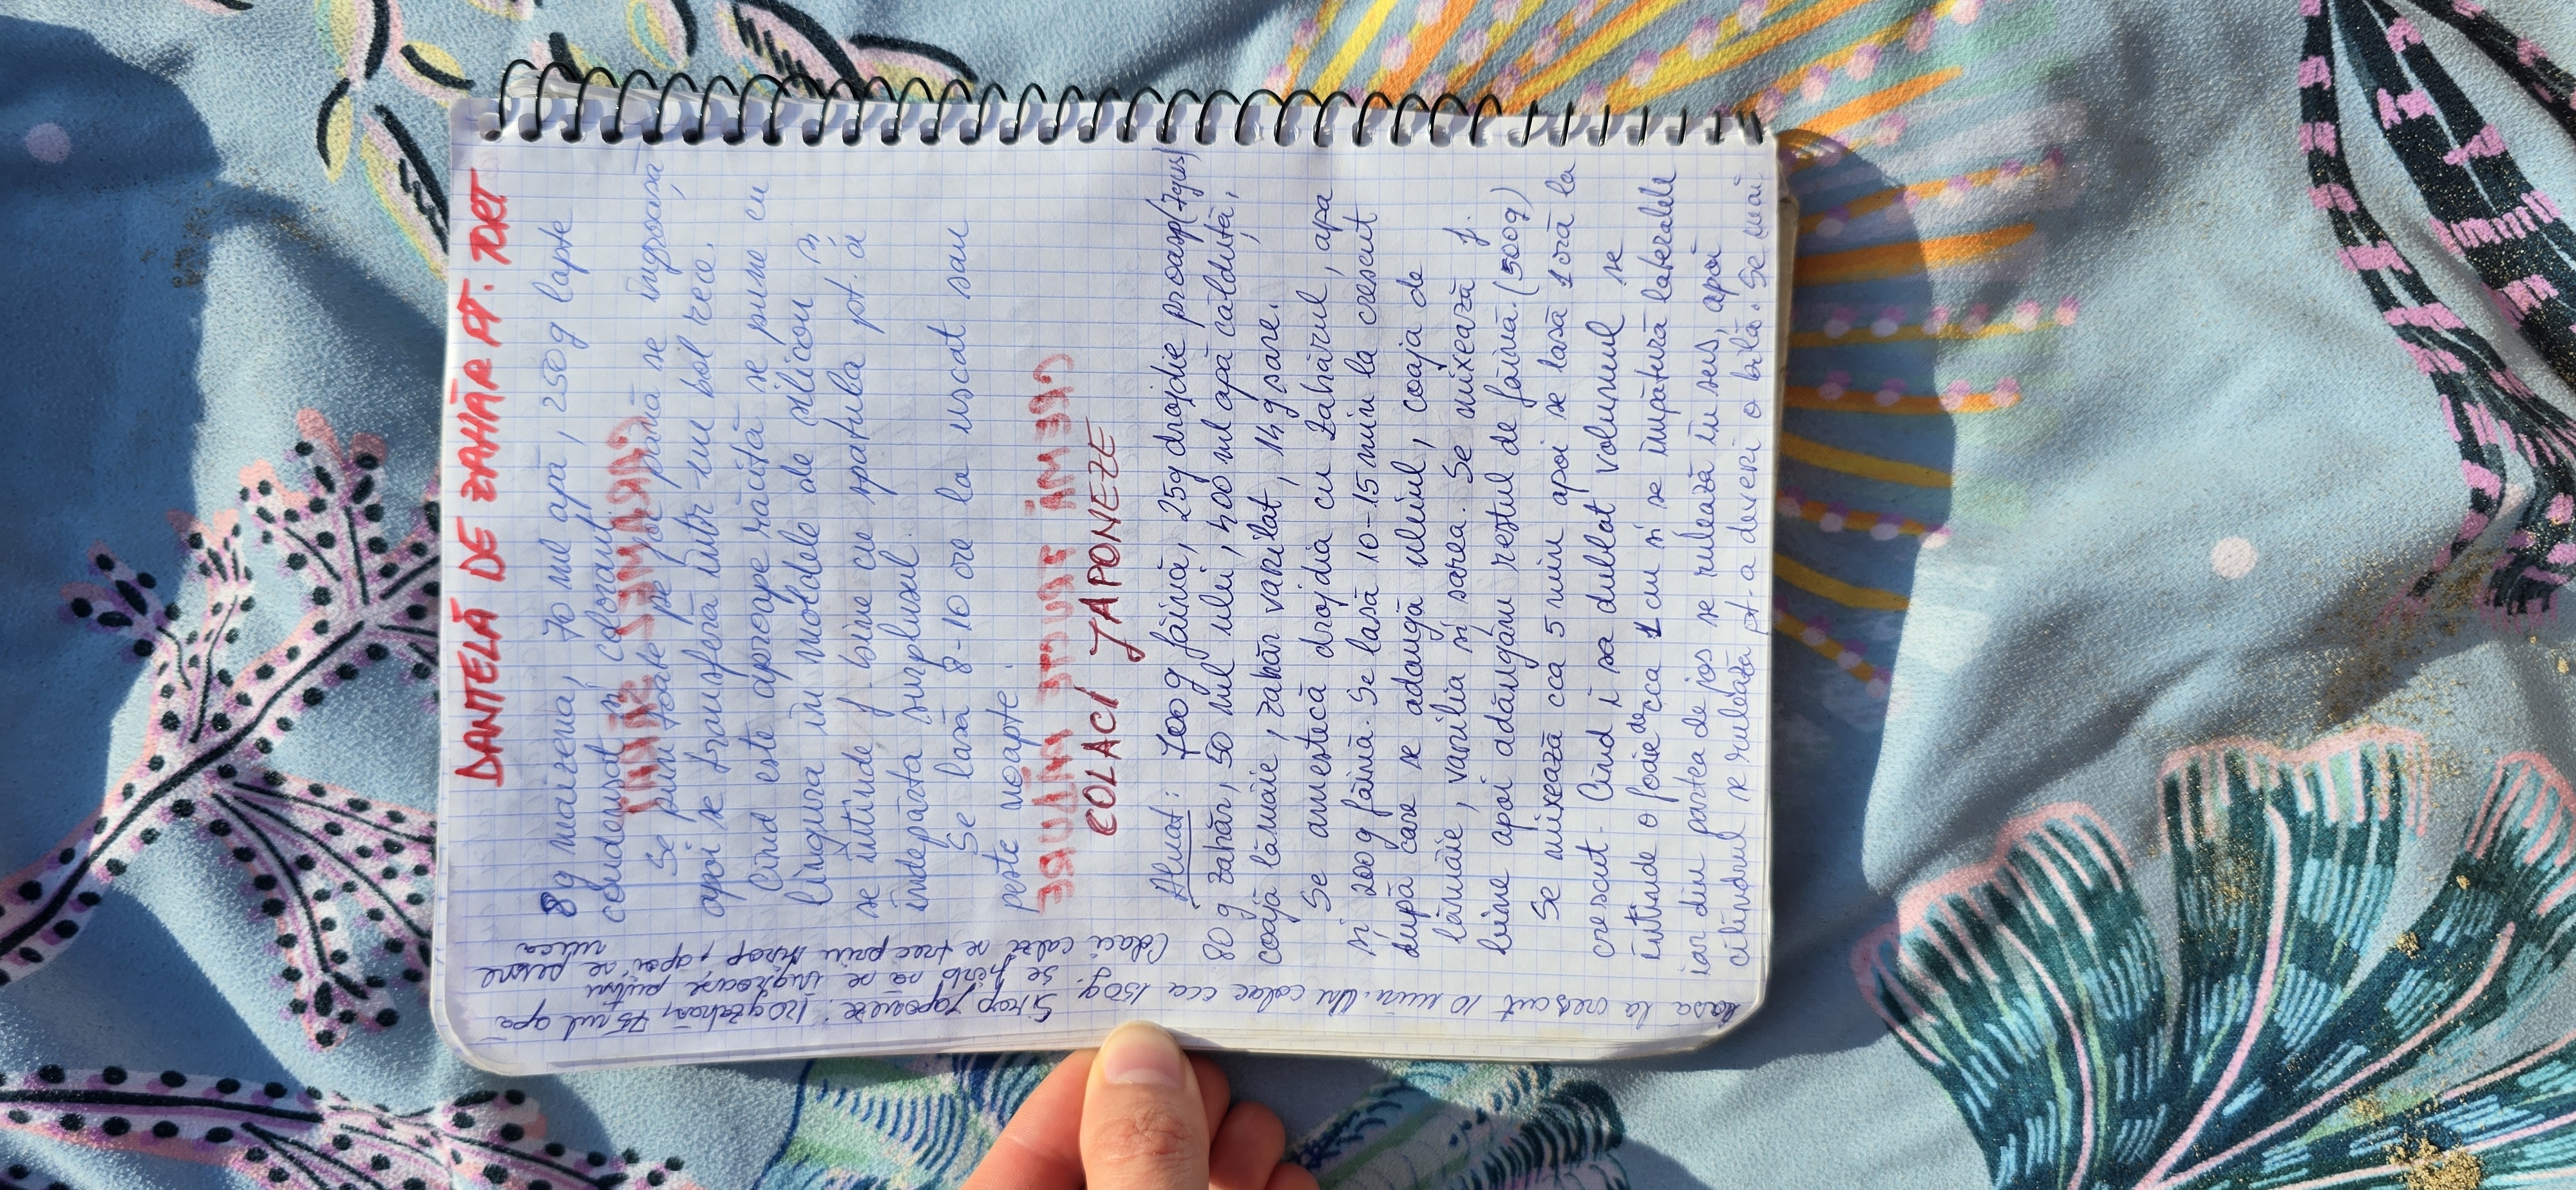 DANTELĂ DE ZAHĂR PT. TORT
8g maizena, 70 ml apă, 250g lapte
condensat și colorant.
Se pun toate pe foc până se îngroașă
apoi se transferă într-un bol rece.
Cînd este aproape răcită se pune cu
lingura în moldele de silicon și
se întinde f. bine cu spatula pt. a
îndepărta surplusul.
Se lasă 8-10 ore la uscat sau
peste noapte.
COLACI JAPONEZE
Aluat: 700g făină, 25g drojdie proasp(7gus)
80g zahăr, 50 ml ulei, 400 ml apă călduță,
coajă lămâie, zahăr vanilat, 14g sare.
Se amestecă drojdia cu zahărul, apa
și 200g făină. Se lasă 10-15 min la crescut
după care se adaugă uleiul, coaja de
lămâie, vanilia și sarea. Se mixează f.
bine apoi adăugăm restul de făină. (500g)
Se mixează cca 5 min apoi se lasă 1 oră la
crescut. Cînd i sa dublat volumul se
întinde o foaie de cca 1 cm și se împătură lateralele
iar din partea de jos se rulează în sus, apoi
cilindrul se rulează pt. a deveni o bilă. Se mai
lasă la crescut 10 min. Un colac cca 150g. Sirop japoneze: 120g zahăr, 75 ml apă
se fierb să se îngroașe puțin
Colaci calzi se trec prin sirop, apoi se pesre
nuca
CARAMEL SĂRAT
CREMĂ FRUCTE PĂDURE